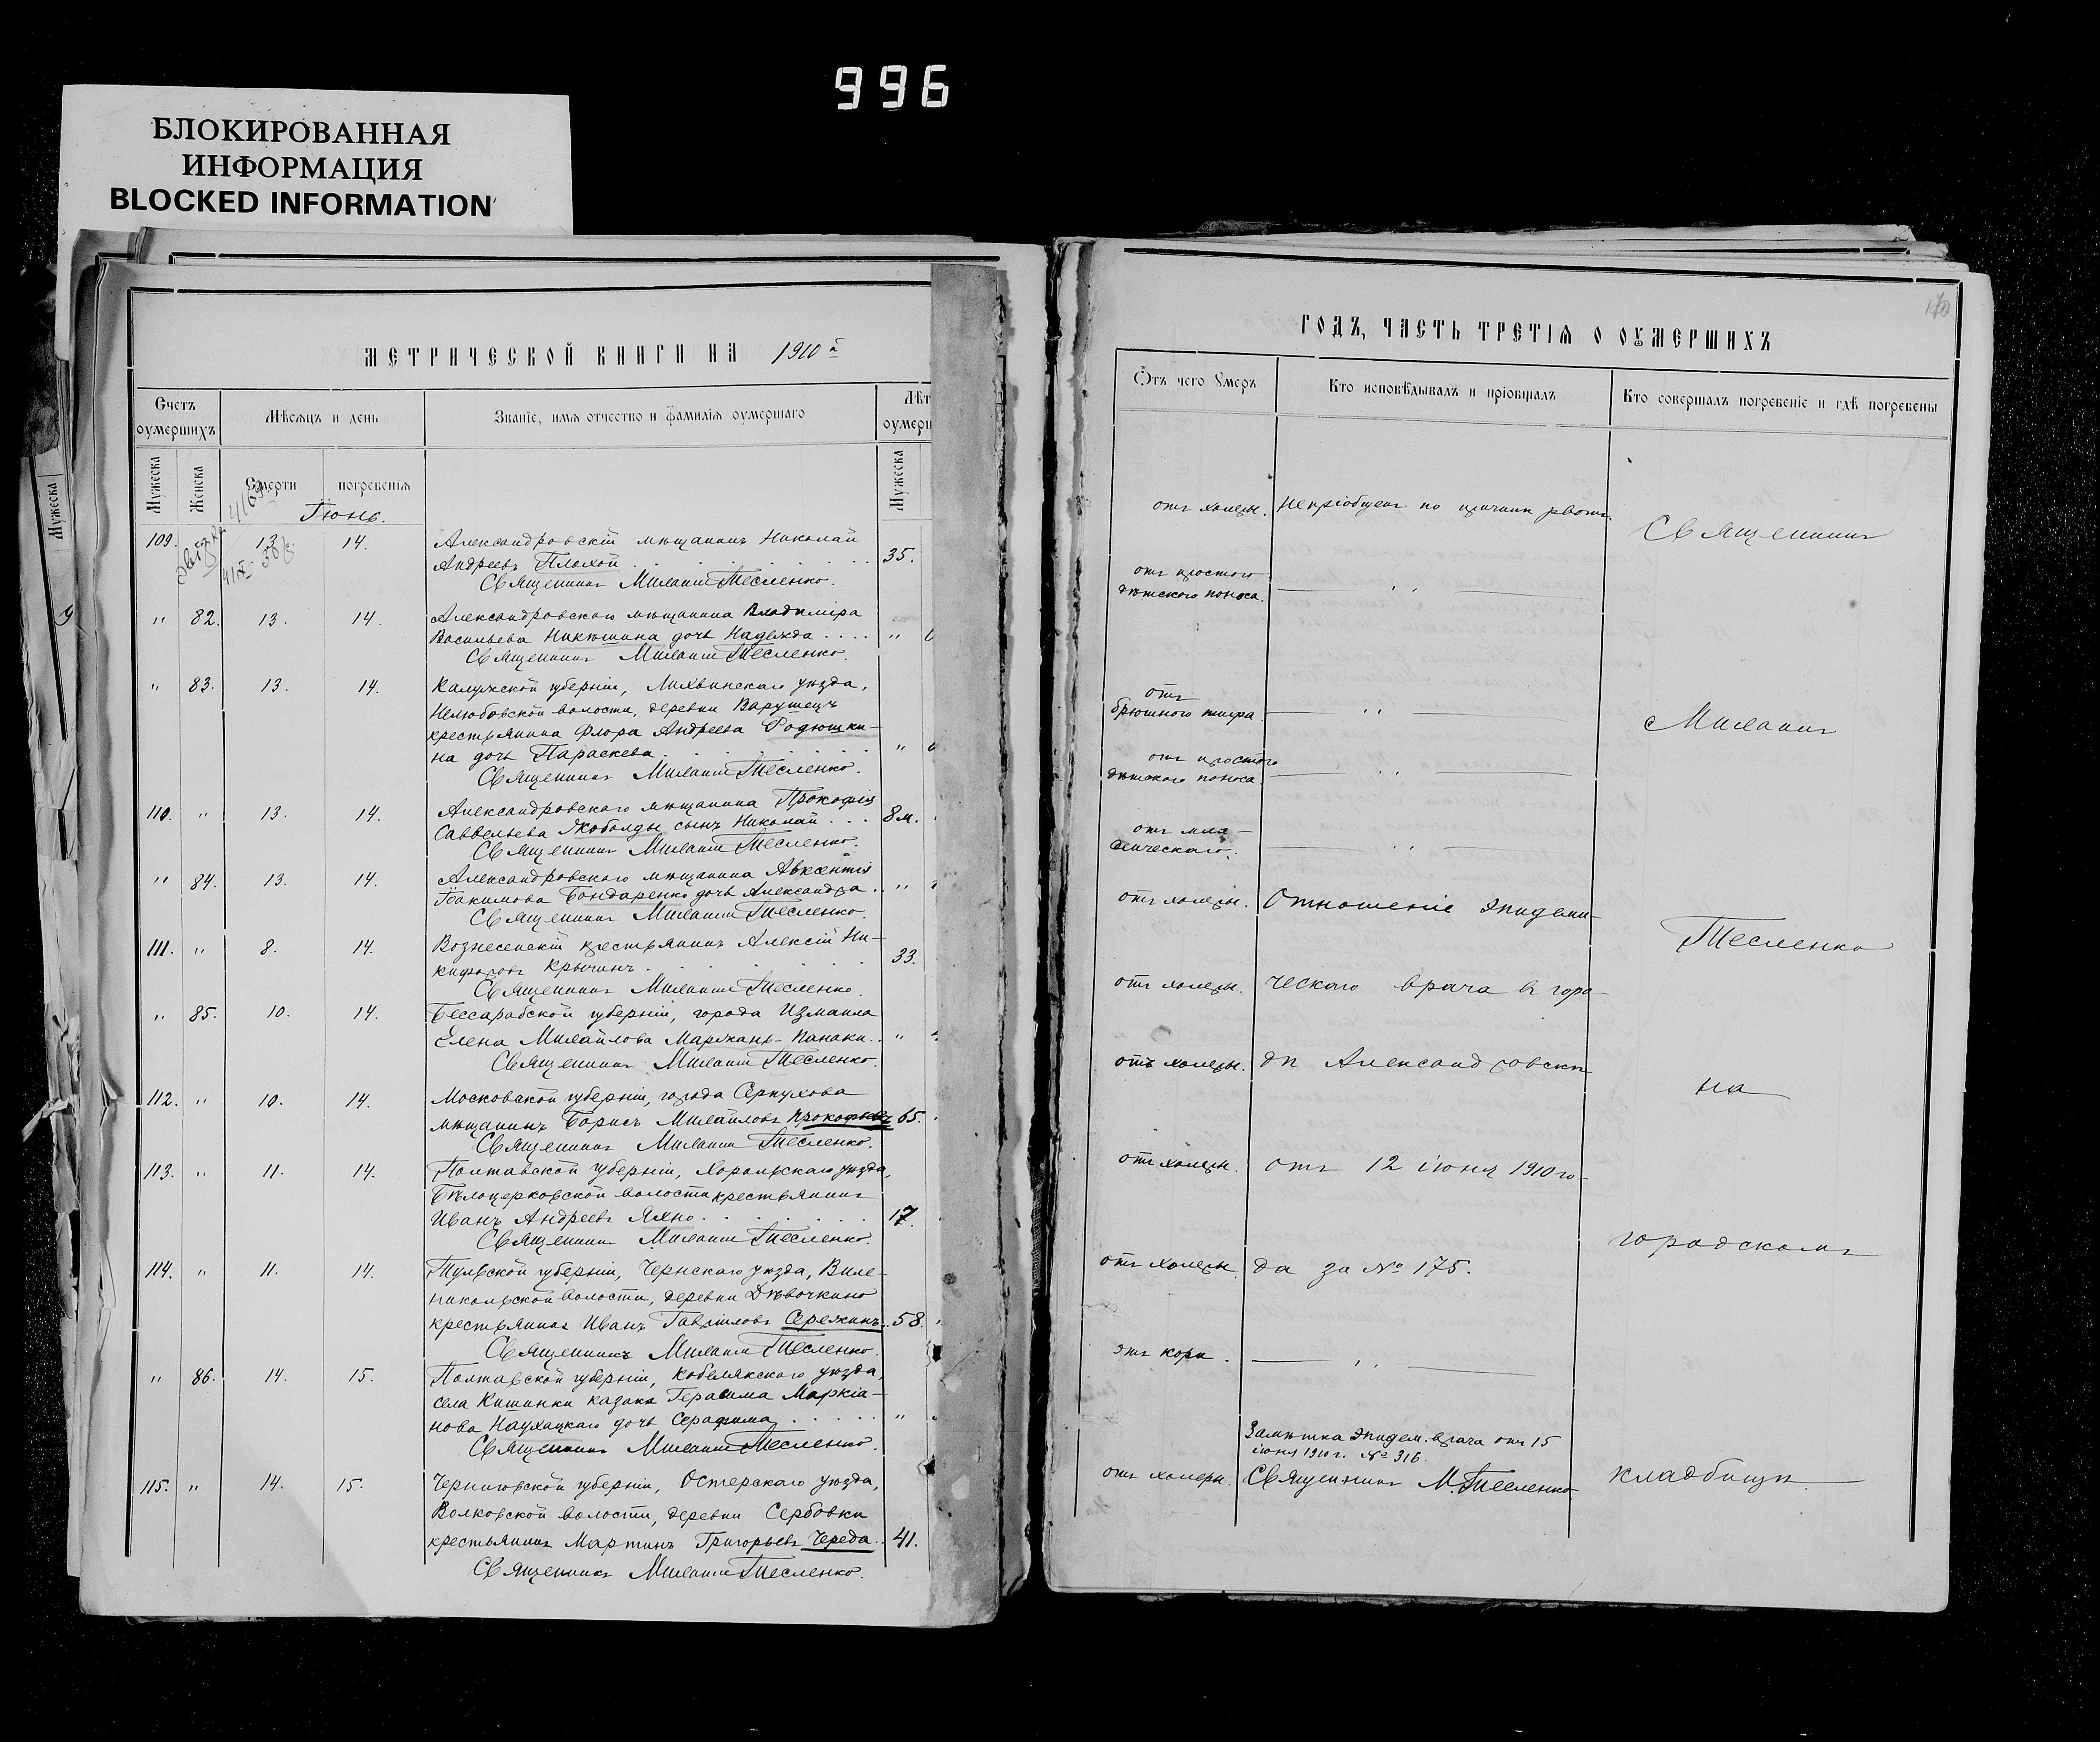 996
БЛОКИРОВАННАЯ
ИНФОРМАЦИЯ
BLOCKED INFORMATION
МЕТРИЧЕСКОЙ КНИГИ НА 1910й
Счетъ оумершихъ
Мѣсяцъ и день
Званіе, имя отчество и фамилія оумершаго
Лѣт
оумерш
Мужеска
Женска
Смерти
погребенія
Мужеска
Мужеска
Іюнь.
109. 13. 14. Александровскій мѣщанинъ Николай
Андреевъ Плохой 35.
Священникъ Михаилъ Тесленко.
" 82. 13. 14. Александровскаго мѣщанина Владиміра
Васильева Никѣшина дочь Надежда "
Священникъ Михаилъ Тесленко.
" 83. 13. 14. Калужской губерніи, Лихвинскаго уѣзда,
Нелюбовской волости, деревни Варушецъ
крестьянина Флора Андреева Родюшки-
на дочь Параскева "
Священникъ Михаилъ Тесленко.
110. " 13. 14. Александровскаго мѣщанина Прокофія
Савельева Якобалды сынъ Николай 8 м.
Священникъ Михаилъ Тесленко.
" 84. 13. 14. Александровскаго мѣщанина Авксентія
Іоакимова Бондаренко дочь Александра "
Священникъ Михаилъ Тесленко.
111. " 8. 14. Вознесенскій крестьянинъ Алексій Ни-
кифоровъ Крычинъ 33.
Священникъ Михаилъ Тесленко.
" 85. 10. 14. Бессарабской губерніи, города Измаила
Елена Михайлова Маржань-Панаки "
Священникъ Михаилъ Тесленко.
112. " 10. 14. Московской губерніи, города Серпухова
мѣщанинъ Борисъ Михайловъ Прокофьевъ 65.
Священникъ Михаилъ Тесленко.
113. " 11. 14. Полтавской губерніи, Хорольскаго уѣзда,
Бѣлоцерковской волости крестьянинъ
Иванъ Андреевъ Яхно 17.
Священникъ Михаилъ Тесленко.
114. " 11. 14. Тульской губерніи, Чернскаго уѣзда, Виле-
никольской волости, деревни Дѣвочкино
крестьянинъ Иванъ Гавріиловъ Сережинъ 58.
Священникъ Михаилъ Тесленко.
" 86. 14. 15. Полтавской губерніи, Кобелякскаго уѣзда,
села Кишинки казака Герасима Маркіа-
нова Наухацкаго дочь Серафима "
Священникъ Михаилъ Тесленко.
115. " 14. 15. Черниговской губерніи, Остерскаго уѣзда,
Волковской волости, деревни Сербовки
крестьянинъ Мартинъ Григорьевъ Череда 41.
Священникъ Михаилъ Тесленко.
ГОДЪ, ЧАСТЬ ТРЕТІЯ О ОУМЕРШИХЪ
Отъ чего умеръ
Кто исповѣдывалъ и пріобщалъ
Кто совершалъ погребеніе и гдѣ погребены
отъ холеры. Непріобщенъ по причинѣ рвоты.
Священникъ
отъ простого
дѣтскаго поноса. "
отъ
брюшного тифа. "
Михаилъ
отъ простого
дѣтскаго поноса "
отъ мла-
денческаго. "
отъ холеры. Отношеніе эпидеми-
Тесленко
отъ холеры. ческаго врача въ горо-
отъ холеры. дѣ Александровскѣ
на
отъ холеры. отъ 12 іюня 1910 го-
городскомъ
отъ холеры. да за № 175.
отъ кори. "
Замѣтка эпидем. врача отъ 15
іюня 1910 г. № 316.
отъ холеры. Священникъ М. Тесленко
кладбищѣ.